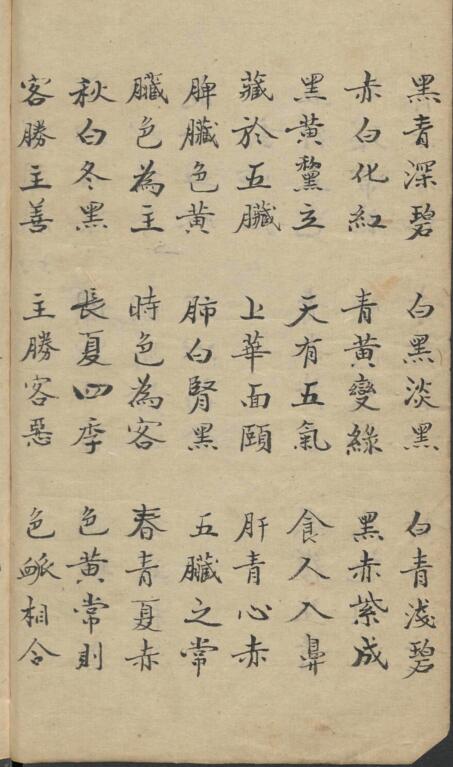 黑青深碧 白黑淡黑 白青淺碧
赤白化紅 青黃變綠 黑赤紫成
黑黃黧立 天有五氣 食人入鼻
藏於五臟 上華面頤 肝青心赤
脾臟色黃 肺白腎黑 五臟之常
臟色為主 時色為客 春青夏赤
秋白冬黑 長夏四季 色黃常則
客勝主善 主勝客惡 色脈相合